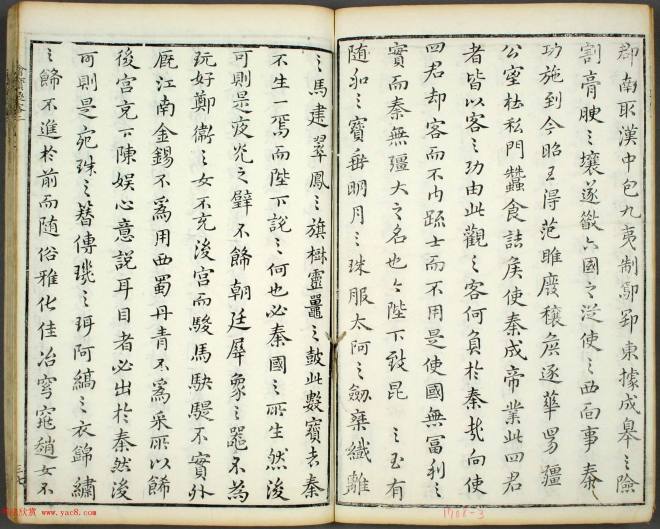 郡南取漢中包九夷制鄢郢東據成皋之險
割膏腴之壤遂散六國之從使之西面事秦
功施到今昭王得范雎廢穰侯逐華陽彊
公室杜私門蠶食諸侯使秦成帝業此四君
者皆以客之功由此觀之客何負於秦哉向使
四君却客而不内疏士而不用是使國無富利之
實而秦無彊大之名也今陛下致昆 之玉有
随和之寶垂明月之珠服太阿之劍乘纖離
之馬建翠鳳之旗樹靈鼉之鼓此數寶者秦
不生一焉而陛下說之何也必秦國之所生然後
可則是夜光之璧不飾朝廷犀象之器不為
玩好鄭衛之女不充後宮而駿馬駃騠不實外
厩江南金錫不爲用西蜀丹青不爲采所以飾
後宮充下陳娛心意說耳目者必出於秦然後
可則是宛珠之簪傅璣之珥阿縞之衣錦繡
之飾不進於前而随俗雅化佳冶窈窕趙女不
1768-3
www.yac8.com